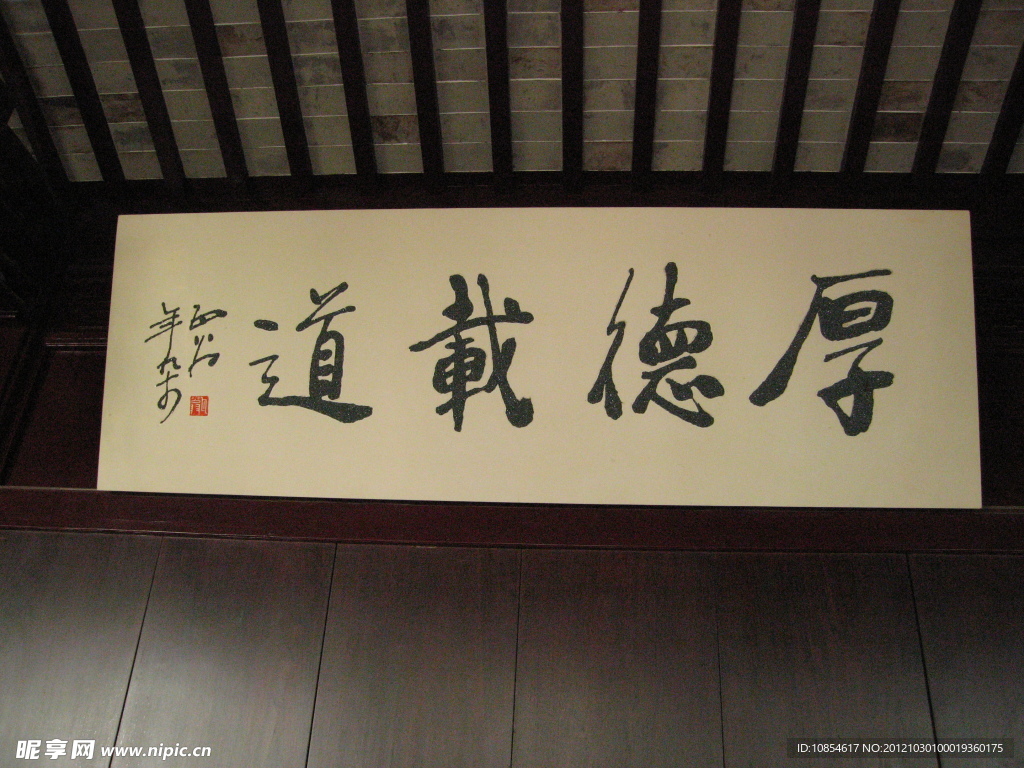 厚德載道
年九十
昵享网 www.nipic.cn
ID:10854617 NO:20121030100019360175